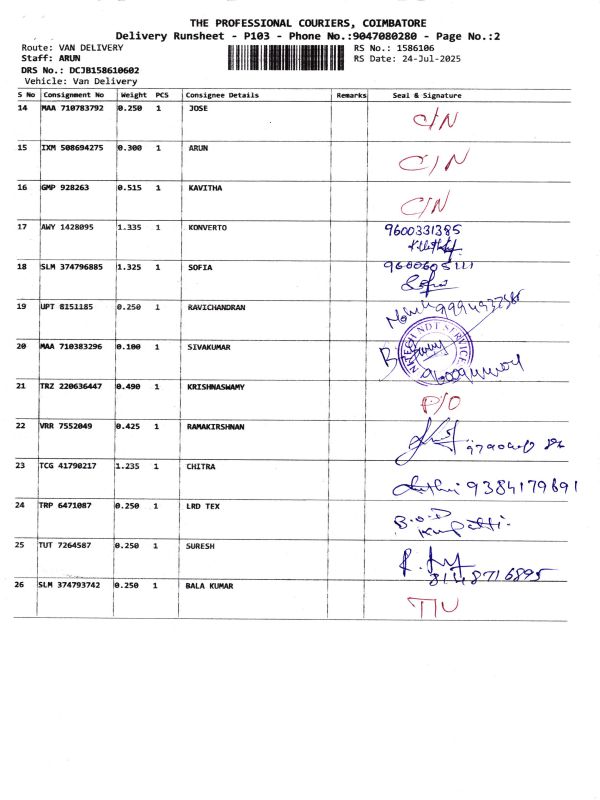 THE PROFESSIONAL COURIERS, COIMBATORE
Delivery Runsheet - P103 - Phone No.:9047080280 - Page No.:2
Route: VAN DELIVERY RS No.: 1586106
Staff: ARUN RS Date: 24-Jul-2025
DRS No.: DCJB158610602
Vehicle: Van Delivery
S No Consignment No Weight PCS Consignee Details Remarks Seal & Signature
14 MAA 710783792 0.250 1 JOSE C/N
15 IXM 508694275 0.300 1 ARUN C/N
16 GMP 928263 0.515 1 KAVITHA C/N
17 AWY 1428095 1.335 1 KONVERTO 9600331385
18 SLM 374796885 1.325 1 SOFIA 9600605111
Sofia
19 UPT 8151185 0.250 1 RAVICHANDRAN
20 MAA 710383296 0.100 1 SIVAKUMAR
NDT SERVICE
21 TRZ 220636447 0.490 1 KRISHNASWAMY P/O
22 VRR 7552049 0.425 1 RAMAKIRSHNAN
23 TCG 41790217 1.235 1 CHITRA 9384179691
24 TRP 6471087 0.250 1 LRD TEX B.O.D
25 TUT 7264587 0.250 1 SURESH
8148716895
26 SLM 374793742 0.250 1 BALA KUMAR